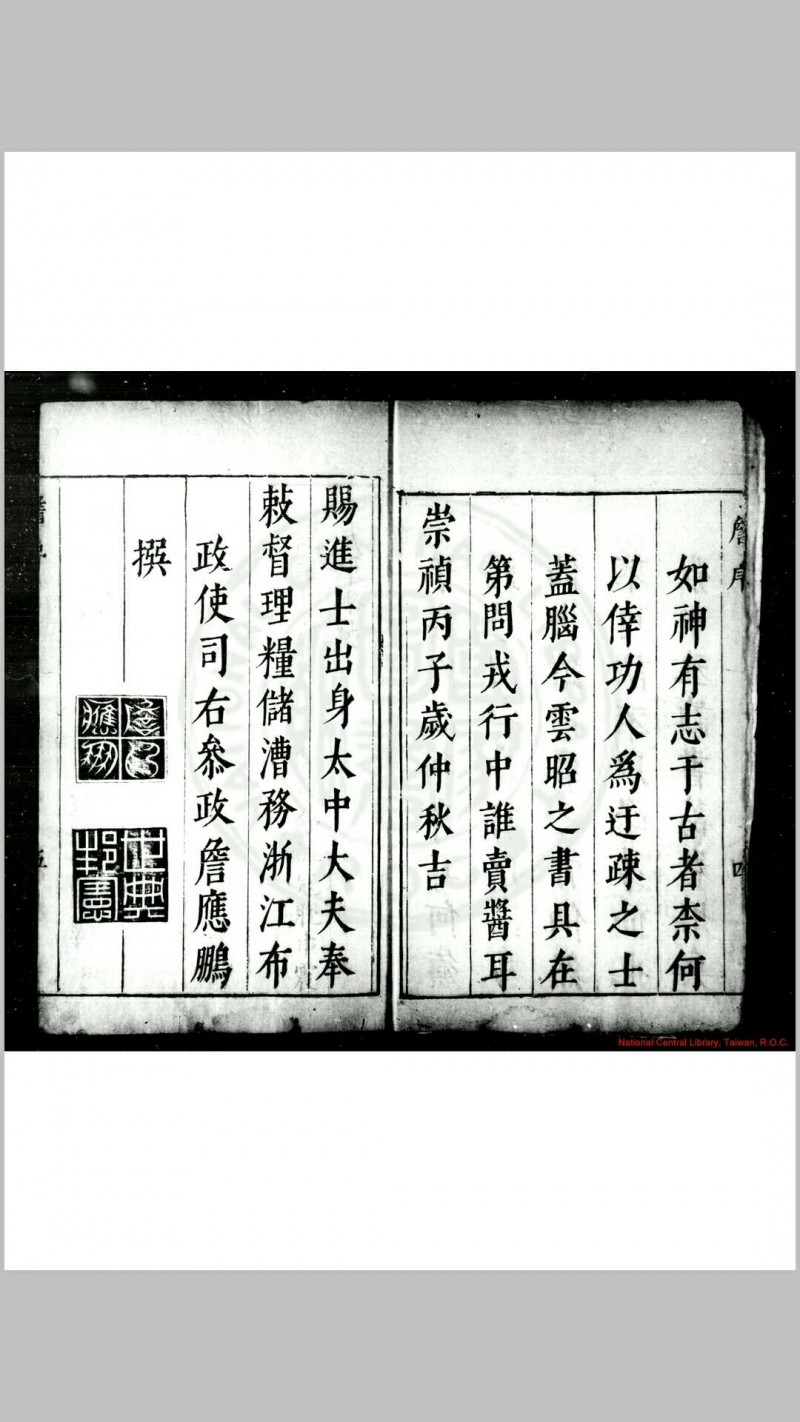 詹序
如神有志于古者柰何
以倖功人爲迂疎之士
蓋腦今雲昭之書具在
第問戎行中誰賣醬耳
崇禎丙子歲仲秋吉
賜進士出身太中大夫奉
敕督理糧儲漕務浙江布
政使司右叅政詹應鵬
撰
世典
邦憲
National Central Library, Taiwan, R.O.C.